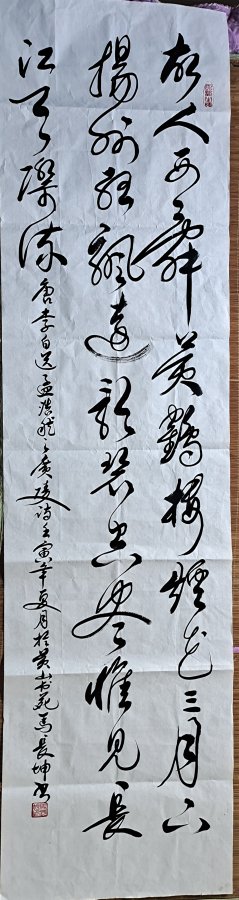 故人西辭黄鶴樓煙花三月下
揚州孤颿遠影碧空盡惟見長
江天際流
唐李白送孟浩然之廣陵詩壬寅年夏月於黄山书苑馬長坤书